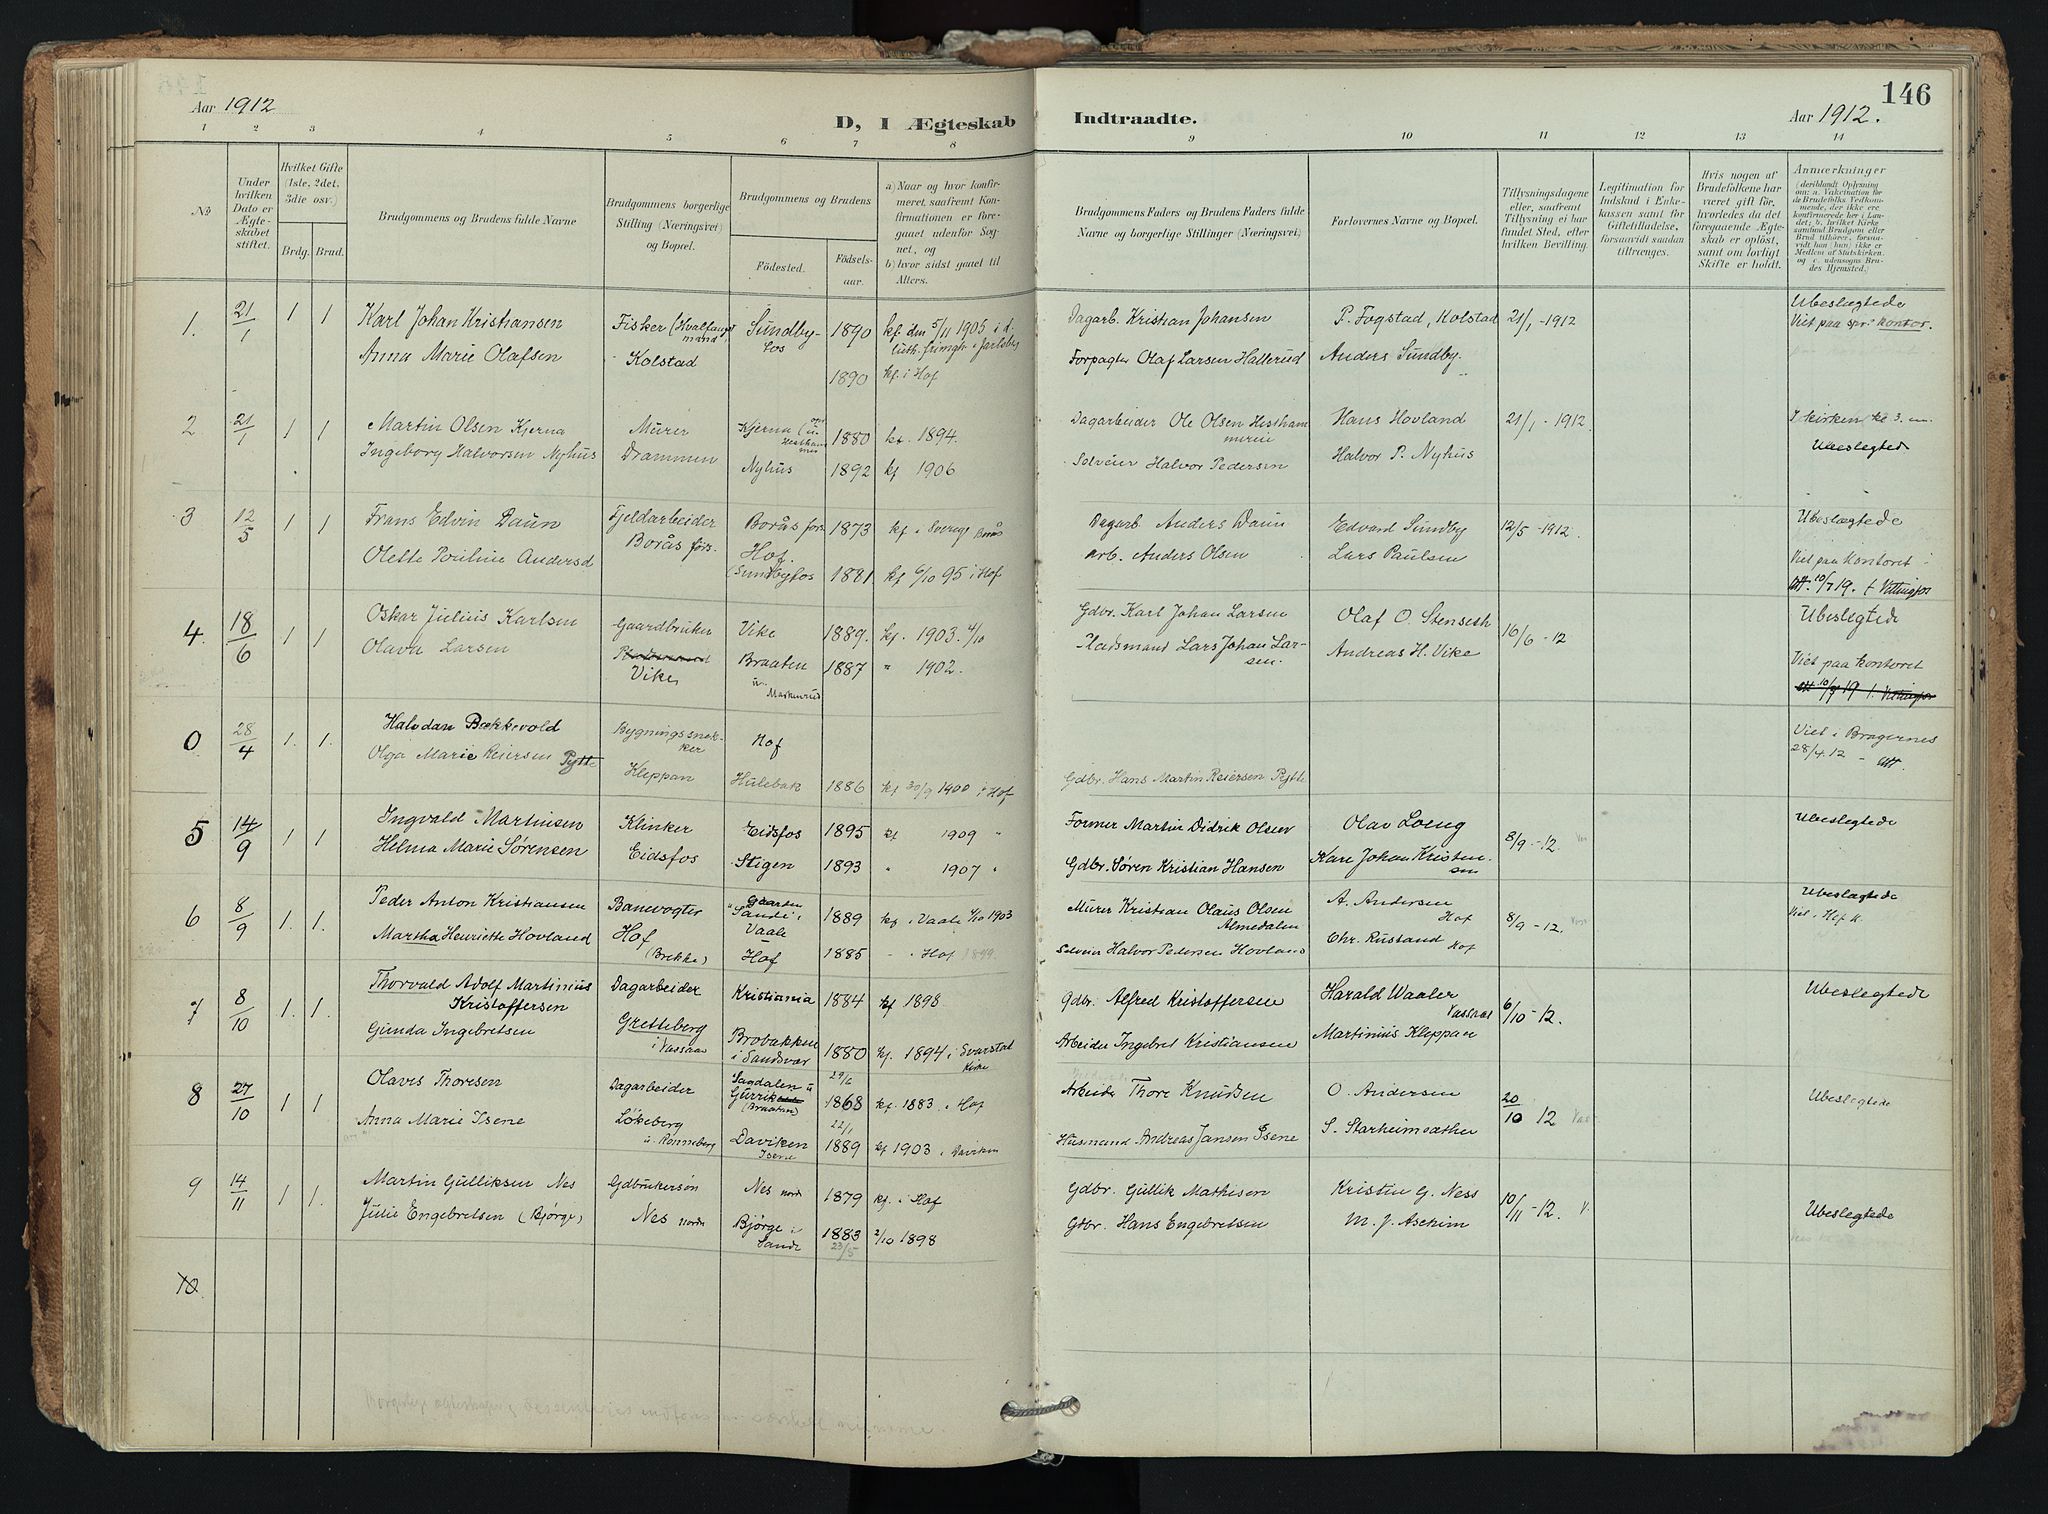 146
Aar 1912
D, I Ægteskab Indtraadte.
Aar 1912.
1 2 3 4 5 6 7 8 9 10 11 12 13 14
No
Under hvilken Dato er Ægteskabet stiftet.
Hvilket Gifte (1ste, 2det, 3die osv.)
Brdg. Brud.
Brudgommens og Brudens fulde Navne
Brudgommens borgerlige Stilling (Næringsvei) og Bopæl.
Brudgommens og Brudens
Fødested.
Fødselsaar.
a) Naar og hvor konfirmeret, saafremt Konfirmationen er foregaaet udenfor Sognet, og
b) hvor sidst gaaet til Alters.
Brudgommens Faders og Brudens Faders fulde Navne og borgerlige Stillinger (Næringsvei)
Forlovernes Navne og Bopæl.
Tillysningsdagene eller, saafremt Tillysning ei har fundet Sted, efter hvilken Bevilling.
Legitimation for Indskud i Enkekassen samt for Giftetilladelse, forsaavidt saadan tiltrænges.
Hvis nogen af Brudefolkene har været gift før, hvorledes da det foregaaende Ægteskab er opløst, samt om lovligt Skifte er holdt.
Anmærkninger
(deriblandt Oplysning om: a. Vakcination for de Brudefolks Vedkommende, der ikke ere konfirmerede her i Landet; b. hvilket Kirkesamfund Brudgom eller Brud tilhører, forsaavidt han (hun) ikke er Medlem af Statskirken, og c. udensogns Brudes Hjemsted.)
1. 21/1 1 1 Karl Johan Kristiansen Fisker (Hvalfangstmand) Sundbyfos 1890 kf. den 5/11 1905 i d. luth. frimgh. i Jarlsberg
Dagarb. Kristian Johansen P. Fogstad, Kolstad 21/1 - 1912 Ubeslægtede
Viet paa spr. kontor.
Anna Marie Olafsen Kolstad 1890 kf. i Hof
Forpagter Olaf Larsen Hallerud Anders Sundby.
2 21/1 1 1 Martin Olsen Kjerna Murer Kjerna 1880 kf. 1894.
Dagarbeider Ole Olsen Hesthammereie Hans Hovland 21/1 - 1912 I kirken kl 3. em.
Ubeslegtede
Ingeborg Halvorsen Nyhus Drammen Nyhus 1892 kf 1906
Selveier Halvor Pedersen Halvor P. Nyhus
3 12/5 1 1 Frans Edvin Daun Fjeldarbeider Borås førs. 1873 kf i Sverige Borås
Dagarb. Anders Daun Edvard Sundby 12/5 - 1912 Ubeslægtede
Olette Pouline Andersd Borås førs. Hof (Sundbyfos 1881 kf 6/10 95 i Hof
Arb. Anders Olsen Lars Paulsen Viet paa Kontoret
Att. 10/7 19. f Vittingfos
4. 18/6 1 1 Oskar Julius Karlsen Gaardbruker Vike 1889. kf. 1903. 4/10
Gdbr. Karl Johan Larsen Olaf O. Stenseth 16/6 - 12 Ubeslegtede
Olava Larsen Vike Braaten u. Maskerud 1887 " 1902.
Pladsmand Lars Johan Larsen. Andreas H. Vike Viet paa kontoret
0 28/4 1. 1. Halvdan Bækkevold Bygningssnekker Hof
Viet i Bragernes 28/4.12 - Att.
Olga Marie Reiersen Pytte Kleppan Hulebak 1886 kf 30/9 1900 i Hof
Gdbr. Hans Martin Reiersen Pytte
5 14/9 1 1 Ingvald Martinsen Klinker Eidsfos 1895 kf 1909 "
Former Martin Didrik Olsen Olav Loeng 8/9 - 12. Ubeslegtede
Helma Marie Sørensen Eidsfos Stigen 1893 " 1907 "
Gdbr. Søren Kristian Hansen Karl Johan Kristensen
6 8/9 1. 1. Peder Anton Kristiansen Banevogter Gaarten Sande i Vaale 1889 kf i Vaale 4/10 1903
Murer Kristian Olaus Olsen Almedalen A. Andersen Hof 8/9 - 12. Ubeslegtede
Viet i Hof K.
Martha Henriette Hovland Hof (Brekke) Hof 1885 - " Hof 1899.
Selveier Halvor Pedersen Hovland Chr. Rustand Hof
7 8/10 1. 1. Thorvald Adolf Martinius Kristoffersen Dagarbeider Kristiania 1884 kf 1898
Gdbr. Alfred Kristoffersen Harald Waaler Vassaas 6/10 - 12. Ubeslegtede
Gunda Ingebretsen Gretteberg i Vassaas Brobakken i Sandsvær 1880 kf. 1894 i Svarstad Kirke
Arbeider Ingebret Kristiansen Martinius Kleppan
8 27/10 1 1 Olavs Thoresen Dagarbeider Sagdalen u Gurrik (Braaten) 29/6 1868 kf. 1883. i Hof
Arbeider Thore Knudsen O. Andersen 20/10 12 Ubeslegtede
Anna Marie Isene Løkeberg u. Ronneberg Daviken Isene 22/1 1889 kf 1903 i Daviken
Husmand Andreas Jansen Isene S. Starheimsæther
9 14/11 1 1. Martin Gulliksen Nes Gdbrukersøn Nes nord 1879 kf. i Hof
Gdbr. Gullik Mathisen Kristin G. Ness 10/11 - 12. V. Ubeslegtede
Julie Engebretsen (Bjørge) Nes nordre Bjørge i Sande 1883 23/5 2/10 1898
Gdbr. Hans Engebretsen M. J. Askim
10.